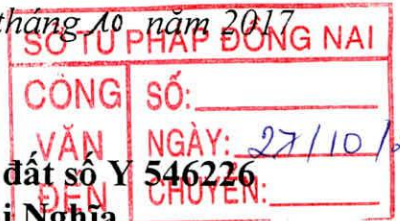 tháng 10 năm 2017
SỞ TƯ PHÁP ĐỒNG NAI
CÔNG VĂN ĐẾN
SỐ:
NGÀY: 27/10/
CHUYỂN:
đất số Y 546226
i Nghĩa